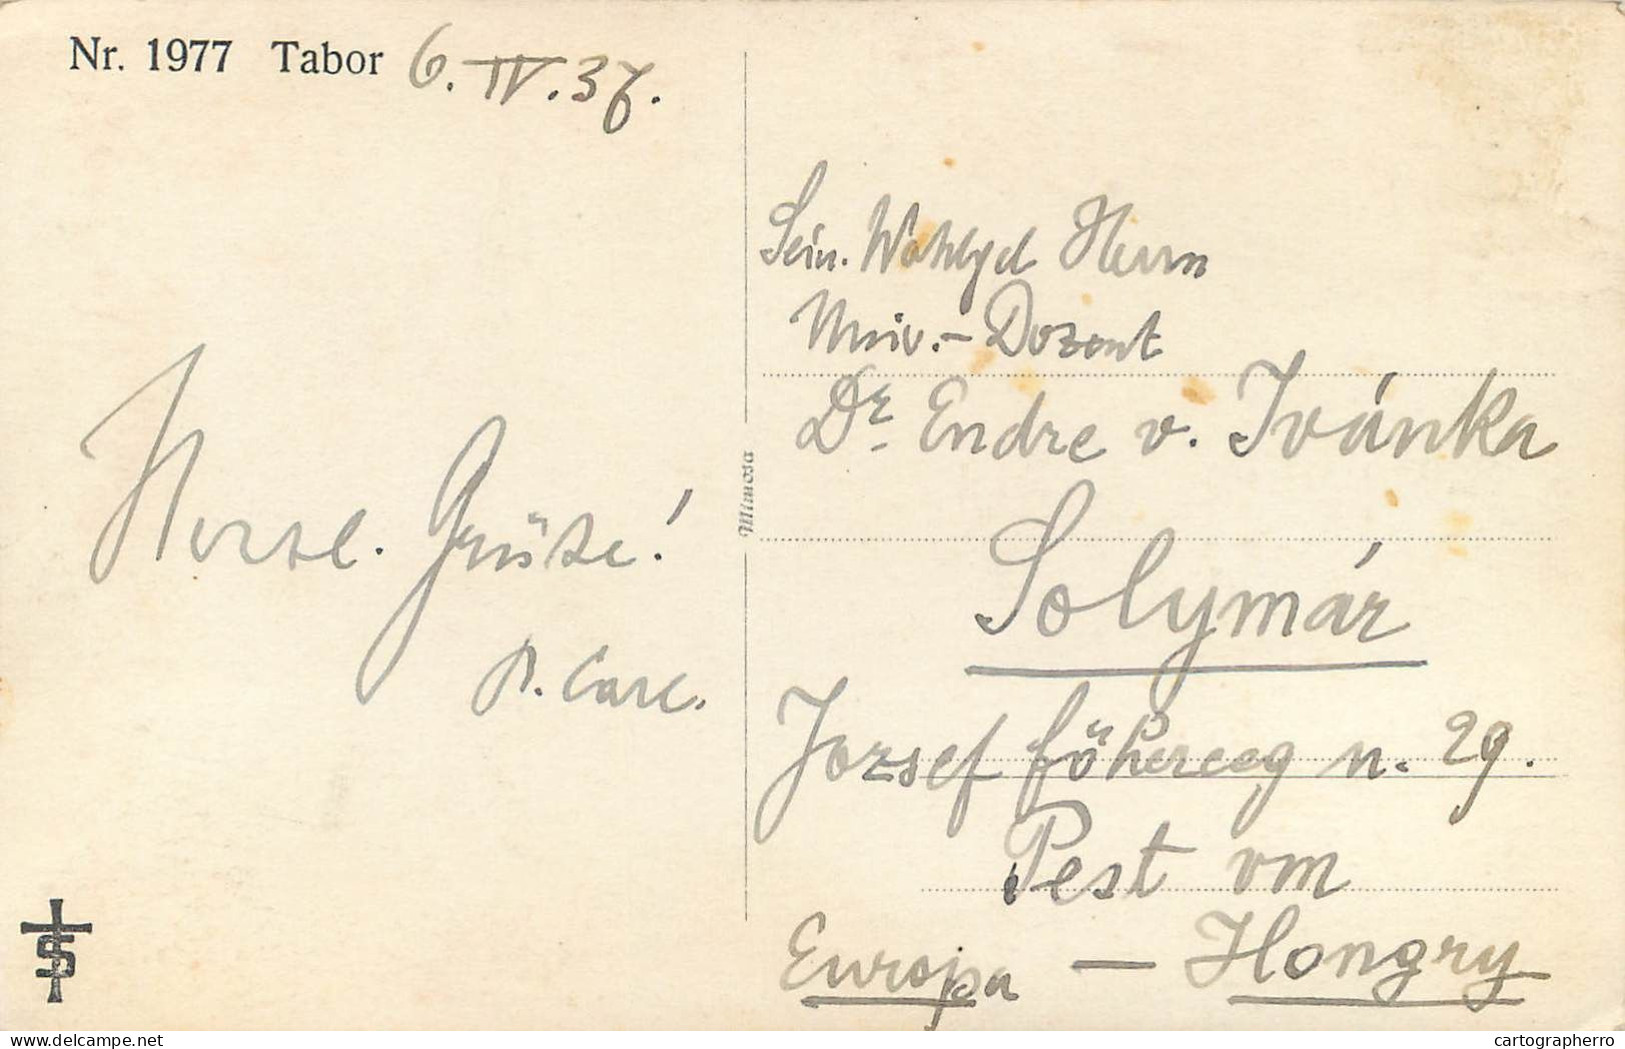 Nr. 1977 Tabor 6. IV. 37.
Herzl. Grüsse!
P. Carl.
Mimosa
Sein. Wohlgd Herrn
Univ. - Dozent
Dr. Endre v. Ivánka
Solymár
Jozsef föherceg n. 29.
Pest vm
Europa — Hongry
TS
delcampe.net
cartographerro